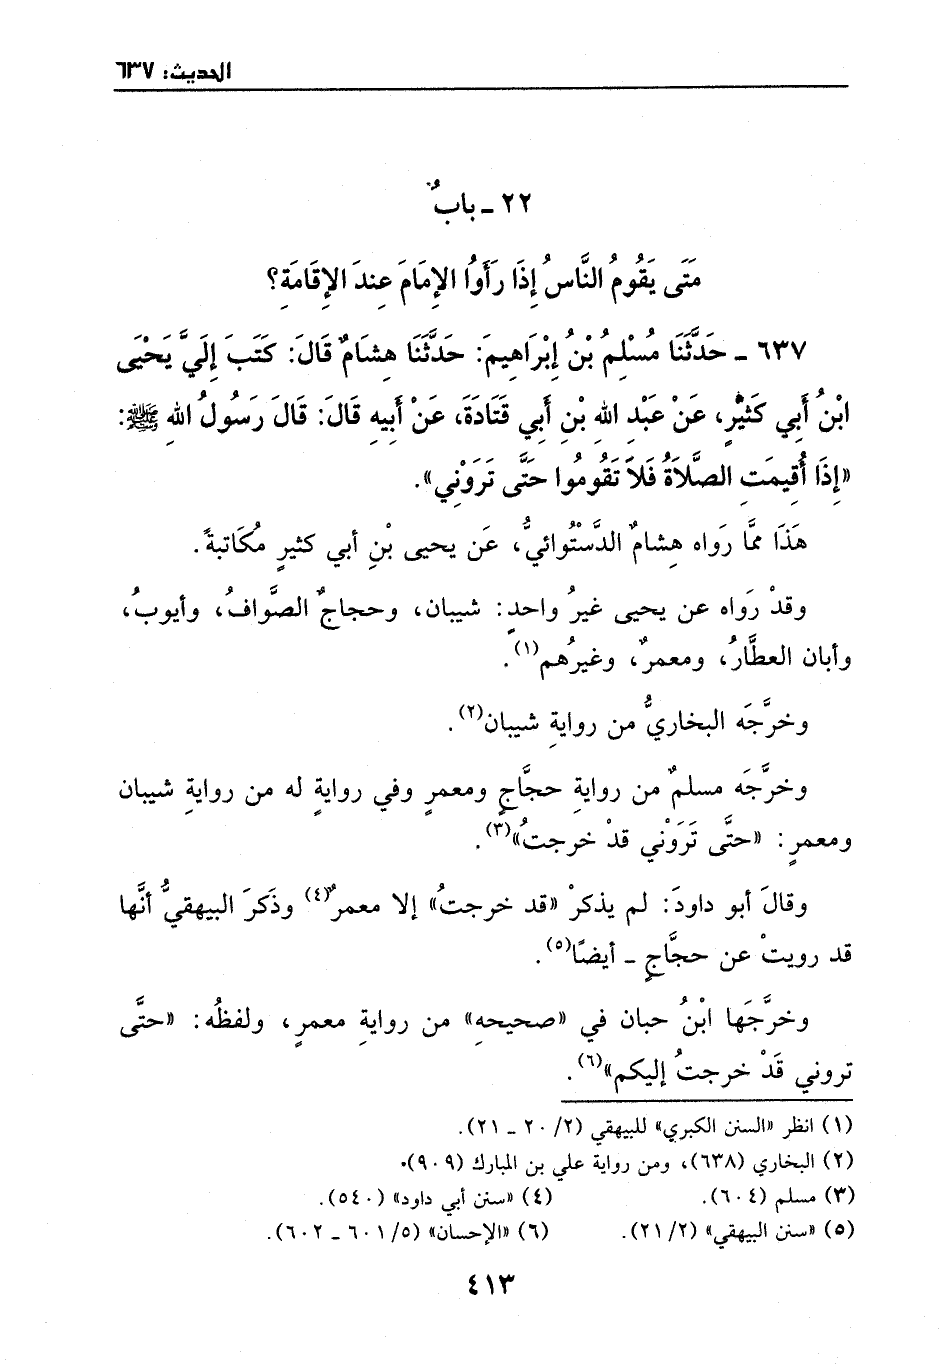 الحديث: ٦٣٧
٢٢ ـ بابٌ
مَتَى يَقُومُ النَّاسُ إِذَا رَأَوُا الإِمَامَ عِندَ الإِقَامَةِ؟
٦٣٧ ـ حَدَّثَنَا مُسْلِمُ بْنُ إِبْرَاهِيمَ: حَدَّثَنَا هِشَامٌ قَالَ: كَتَبَ إِلَيَّ يَحْيَى
ابْنُ أَبِي كَثِيْرٍ، عَنْ عَبْدِ اللهِ بْنِ أَبِي قَتَادَةَ، عَنْ أَبِيهِ قَالَ: قَالَ رَسُولُ اللهِ ﷺ:
«إِذَا أُقِيمَتِ الصَّلَاةُ فَلَا تَقُومُوا حَتَّى تَرَوْنِي».
هَذَا ممَّا رَواه هِشامٌ الدَّسْتُوائيُّ، عَن يحيى بْنِ أبي كثيرٍ مكُاتبةً.
وقدْ رَواه عن يحيى غيرُ واحدٍ: شيبان، وحجاجٌ الصَّوافُ، وأيوبُ،
وأبان العطَّارُ، ومعمرٌ، وغيرُهم(١).
وخرَّجَه البخاريُّ من روايةِ شيبان(٢).
وخرَّجَه مسلمٌ من روايةِ حجَّاجٍ ومعمرٍ وفي روايةٍ له من روايةِ شيبان
ومعمرٍ: «حتَّى تَرَوْني قدْ خرجتُ»(٣).
وقالَ أبو داودَ: لم يذكرْ «قد خرجتُ» إلا معمرٌ(٤) وذَكرَ البيهقيُّ أنَّها
قد رويتْ عن حجَّاجٍ ـ أيضًا(٥).
وخرَّجَها ابْنُ حبان في «صحيحهِ» من روايةِ معمرٍ، ولفظُه: «حتَّى
تروني قَدْ خرجتُ إليكم»(٦).
(١) انظر «السنن الكبرى» للبيهقي (٢/ ٢٠ ـ ٢١).
(٢) البخاري (٦٣٨)، ومن رواية علي بن المبارك (٩٠٩).
(٣) مسلم (٦٠٤). (٤) «سنن أبي داود» (٥٤٠).
(٥) «سنن البيهقي» (٢/ ٢١). (٦) «الإحسان» (٥/ ٦٠١ ـ ٦٠٢).
٤١٣